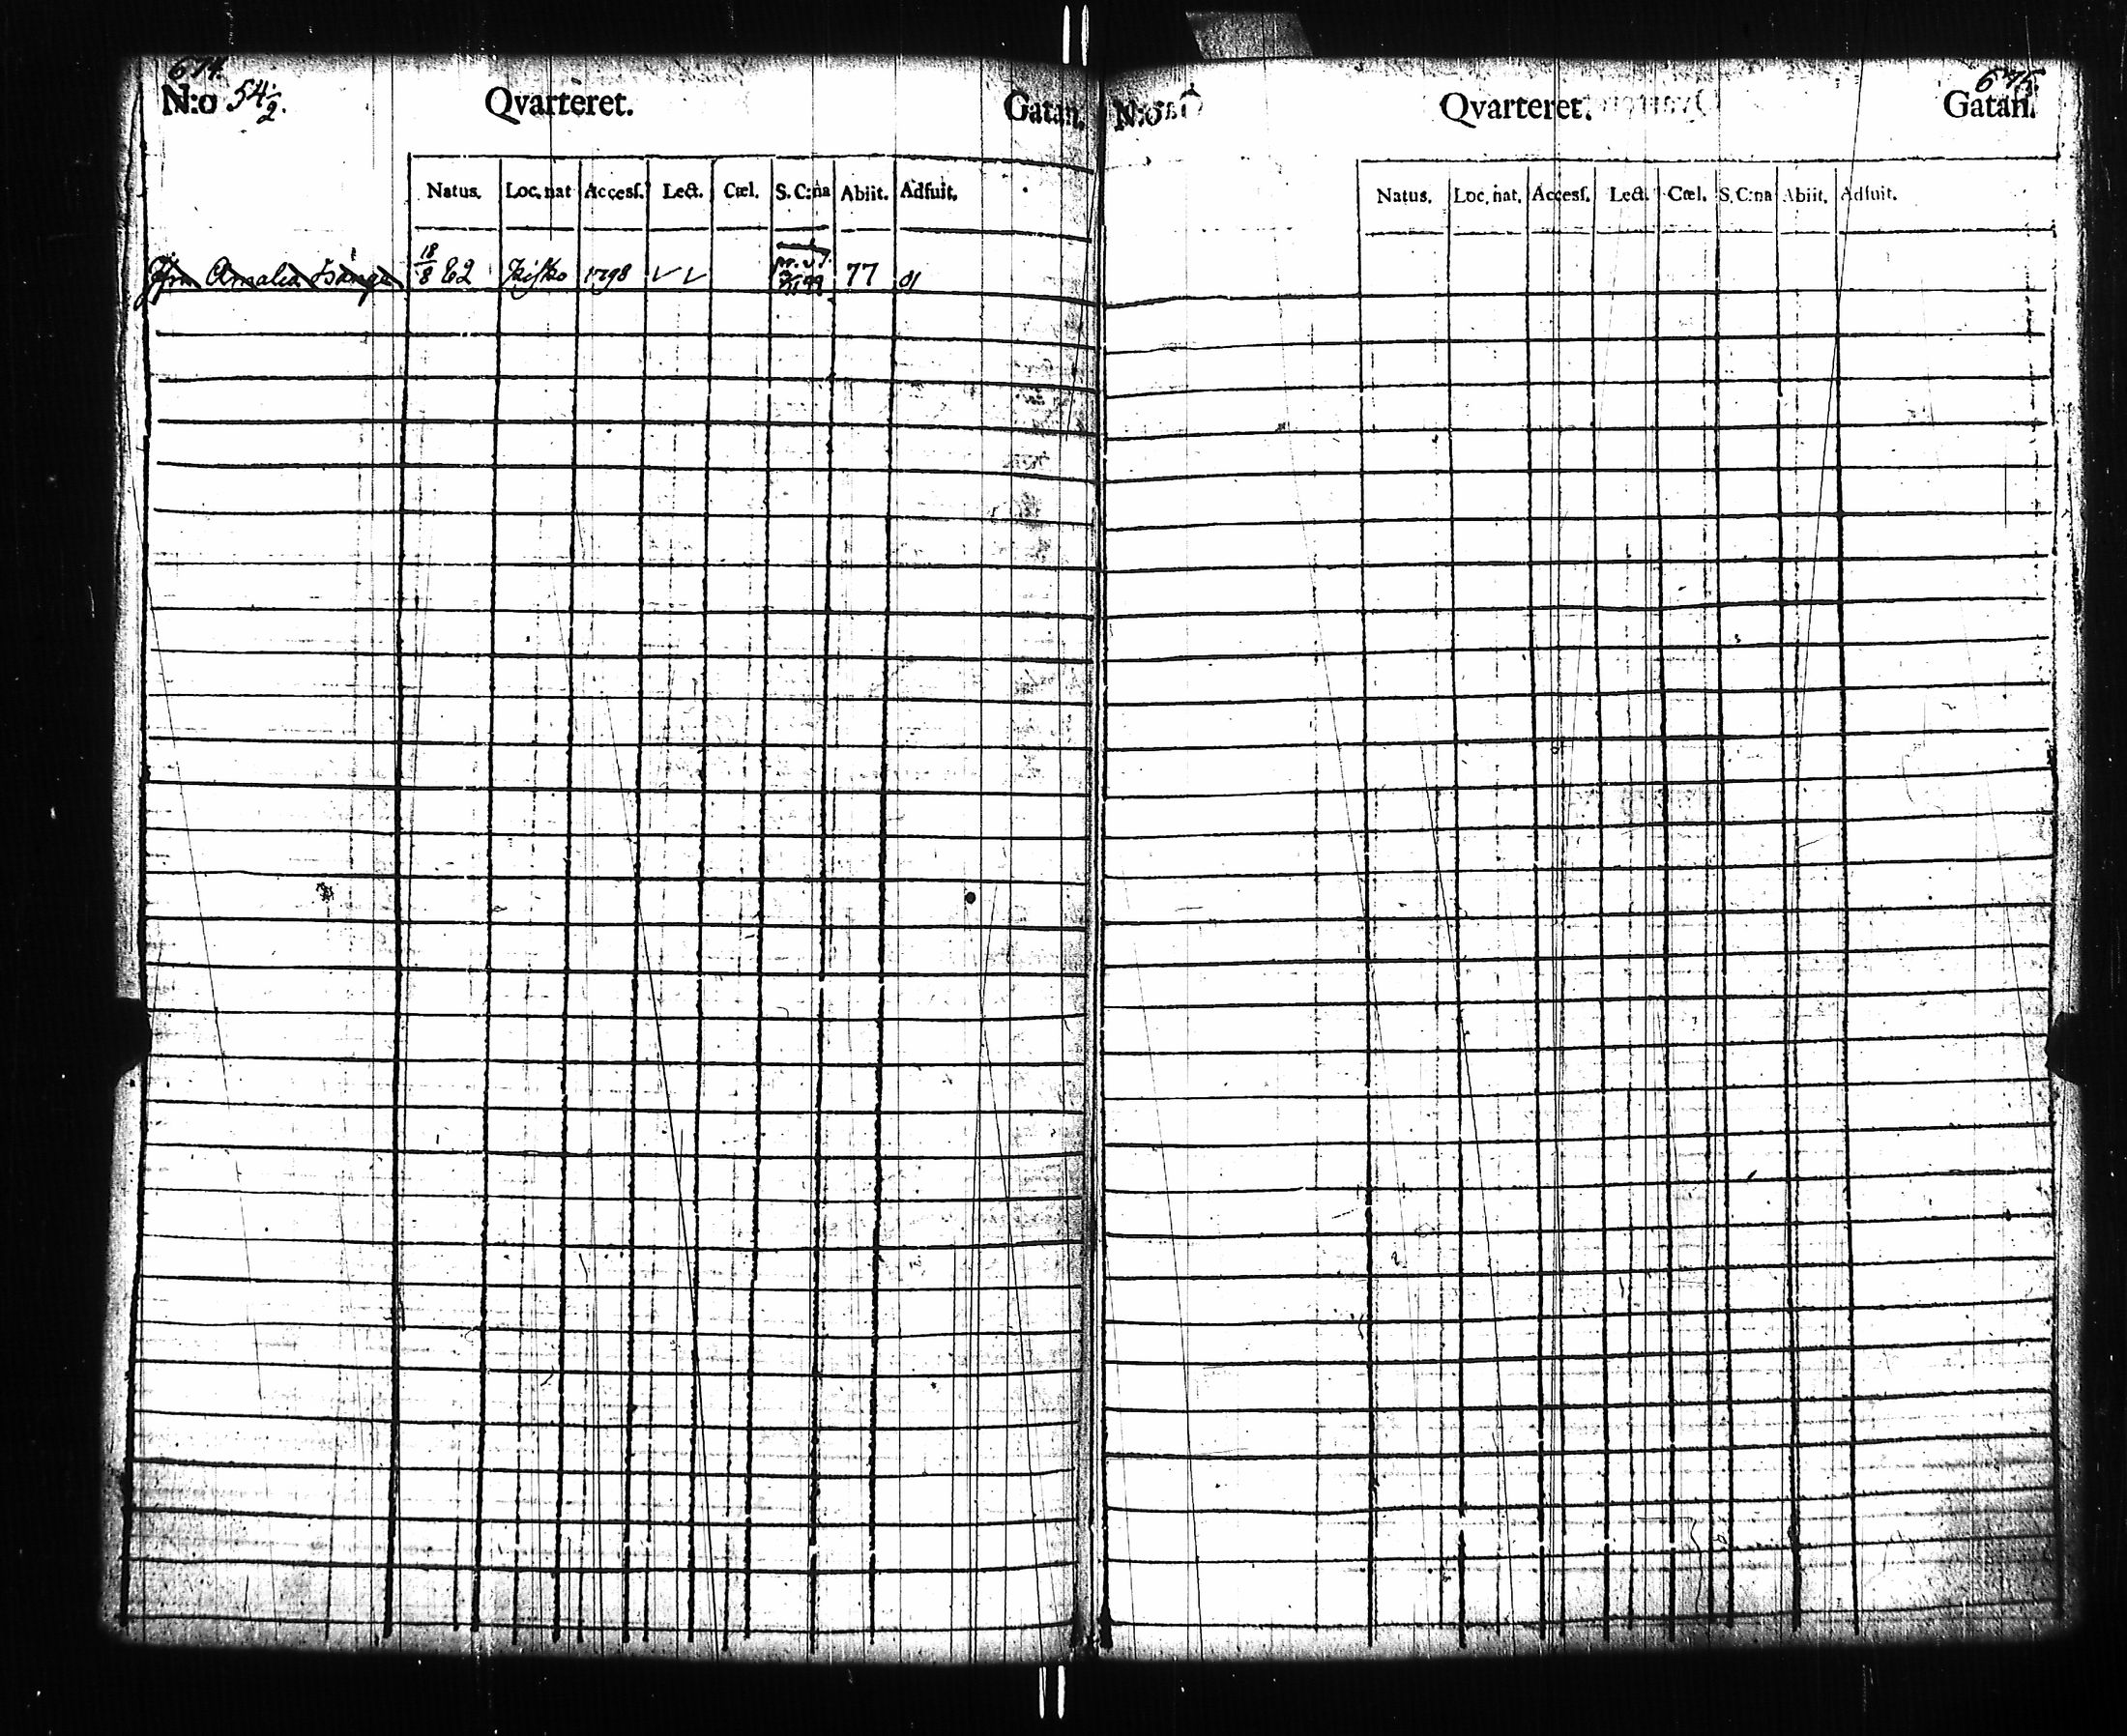 674.
N:o 54 1/2. Qvarteret. Gatan.
Natus. Loc. nat Accesſ. Lect. Cœl. S. C:na Abiit. Adfuit.
Amalia 18/8 82 Kisko 1798 77
675.
N:o Qvarteret. Gatan.
Natus. Loc. nat. Accesſ. Lect. Cœl. S. C:na Abiit. Adfuit.